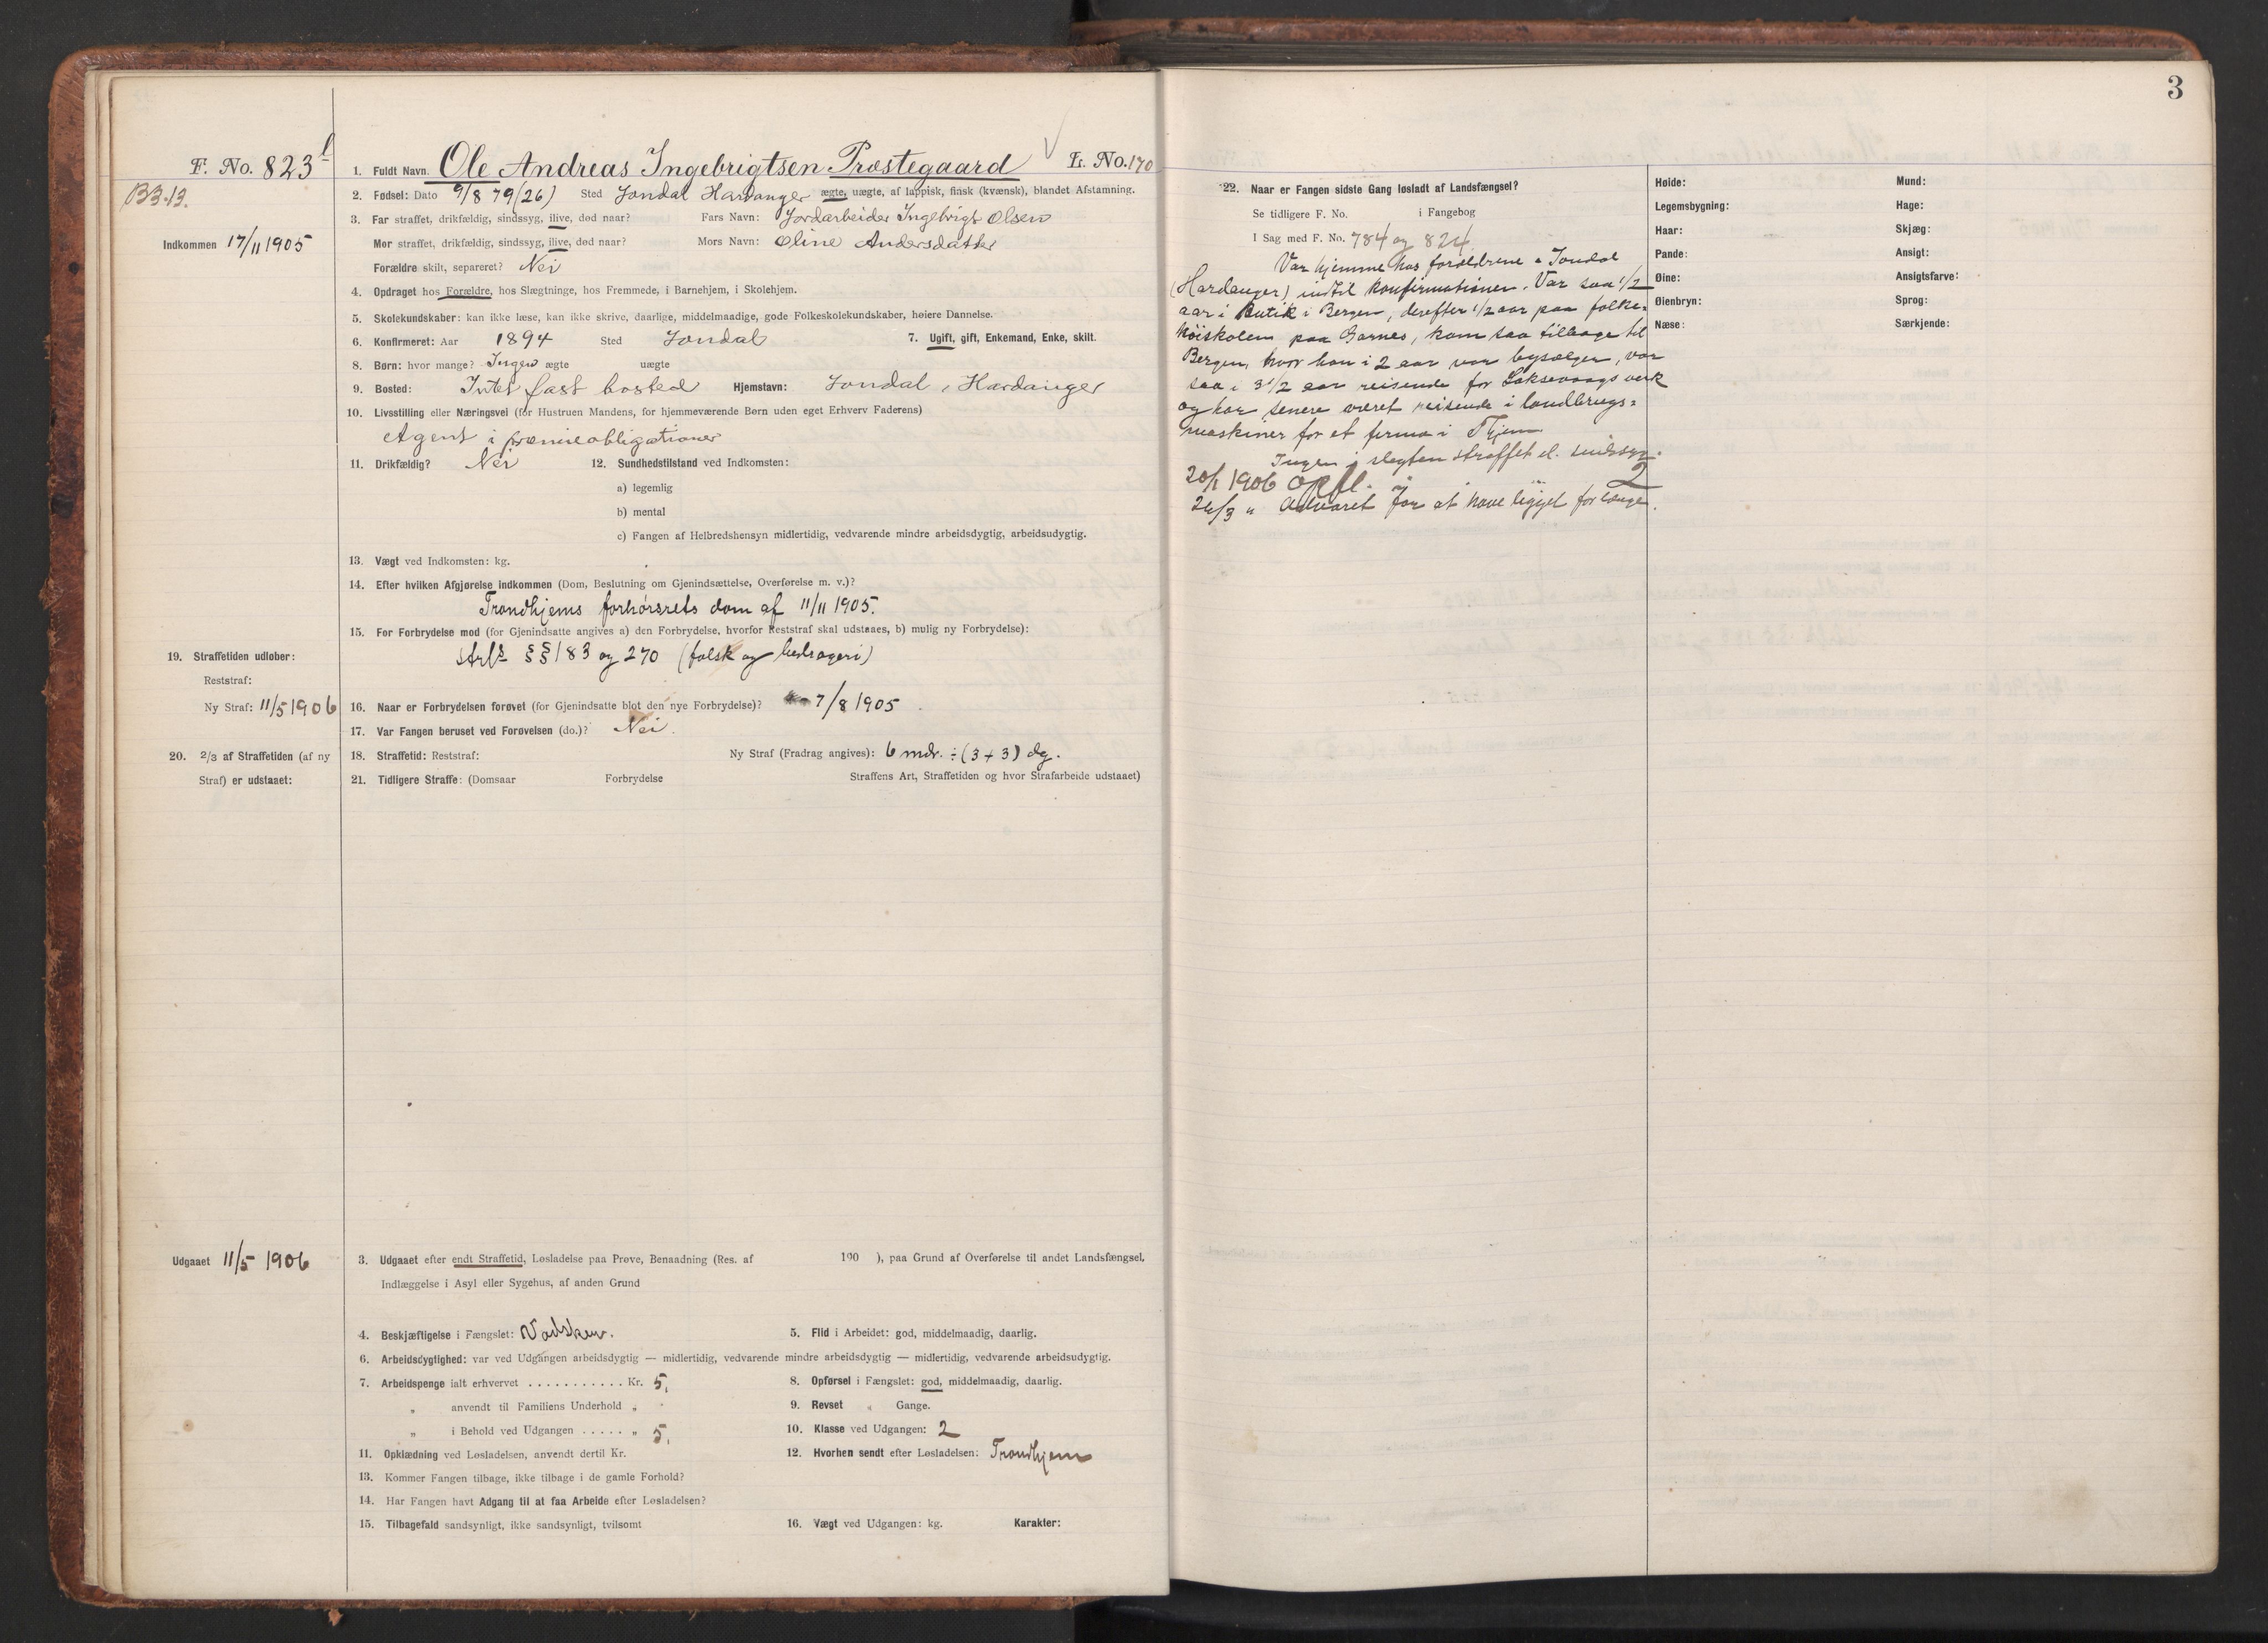 3
F. No. 823 l
1. Fuldt Navn. Ole Andreas Ingebrigtsen Præstegaard L. No. 170
BB.13.
2. Fødsel: Dato 9/8 79 (26) Sted Jondal Hardanger ægte, uægte, af lappisk, finsk (kvænsk), blandet Afstamning.
3. Far straffet, drikfældig, sindssyg, ilive, død naar? Fars Navn: Jordarbeider Ingebrigt Olsen
Indkommen 17/11 1905
Mor straffet, drikfældig, sindssyg, ilive, død naar? Mors Navn: Oline Andersdatter
Forældre skilt, separeret? Nei
4. Opdraget hos Forældre, hos Slægtninge, hos Fremmede, i Barnehjem, i Skolehjem.
5. Skolekundskaber: kan ikke læse, kan ikke skrive, daarlige, middelmaadige, gode Folkeskolekundskaber, høiere Dannelse.
6. Konfirmeret: Aar 1894 Sted Jondal 7. Ugift, gift, Enkemand, Enke, skilt.
8. Børn: hvor mange? Ingen ægte uægte
9. Bosted: Intet fast bosted Hjemstavn: Jondal i Hardanger
10. Livsstilling eller Næringsvei (for Hustruen Mandens, for hjemmeværende Børn uden eget Erhverv Faderens)
Agent i præmieobligationer
11. Drikfældig? Nei 12. Sundhedstilstand ved Indkomsten:
a) legemlig
b) mental
c) Fangen af Helbredshensyn midlertidig, vedvarende mindre arbeidsdygtig, arbeidsudygtig.
13. Vægt ved Indkomsten: kg.
14. Efter hvilken Afgjørelse indkommen (Dom, Beslutning om Gjenindsættelse, Overførelse m. v.)?
Trondhjems forhørsrets dom af 11/11 1905.
15. For Forbrydelse mod (for Gjenindsatte angives a) den Forbrydelse, hvorfor Reststraf skal udstaaes, b) mulig ny Forbrydelse):
strfl §§ 183 og 270 (falsk og bedrageri)
19. Straffetiden udløber:
Reststraf:
Ny Straf: 11/5 1906
16. Naar er Forbrydelsen forøvet (for Gjenindsatte blot den nye Forbrydelse)? 7/8 1905
17. Var Fangen beruset ved Forøvelsen (do.)? Nei.
20. 2/3 af Straffetiden (af ny
Straf) er udstaaet:
18. Straffetid: Reststraf: Ny Straf (Fradrag angives): 6 mdr. ÷ (3 + 3) dg.
21. Tidligere Straffe: (Domsaar Forbrydelse Straffens Art, Straffetiden og hvor Strafarbeide udstaaet)
Udgaaet 11/5 1906
3. Udgaaet efter endt Straffetid, Løsladelse paa Prøve, Benaadning (Res. af 190 ), paa Grund af Overførelse til andet Landsfængsel,
Indlæggelse i Asyl eller Sygehus, af anden Grund
4. Beskjæftigelse i Fængslet: 5. Flid i Arbeidet: god, middelmaadig, daarlig.
6. Arbeidsdygtighed: var ved Udgangen arbeidsdygtig — midlertidig, vedvarende mindre arbeidsdygtig — midlertidig, vedvarende arbeidsudygtig.
7. Arbeidspenge ialt erhvervet . . . . . . . . . . . Kr. 5, 8. Opførsel i Fængslet: god, middelmaadig, daarlig.
„ anvendt til Familiens Underhold „ 9. Revset „ Gange.
„ i Behold ved Udgangen . . . . . „ 5, 10. Klasse ved Udgangen: 2
11. Opklædning ved Løsladelsen, anvendt dertil Kr. 12. Hvorhen sendt efter Løsladelsen: Trondhjem
13. Kommer Fangen tilbage, ikke tilbage i de gamle Forhold?
14. Har Fangen havt Adgang til at faa Arbeide efter Løsladelsen?
15. Tilbagefald sandsynligt, ikke sandsynligt, tvilsomt 16. Vægt ved Udgangen: kg. Karakter:
22. Naar er Fangen sidste Gang løsladt af Landsfængsel?
Se tidligere F. No. i Fangebog
I Sag med F. No. 784 og 824
Var hjemme hos forældrene i Jondal
(Hardanger) indtil konfirmationen. Var saa 1/2
aar i Butik i Bergen, derefter 1/2 aar paa folke=
høiskolen paa Garnes, kom saa tilbage til
Bergen, hvor han i 2 aar var bysælger, var
saa i 3 1/2 aar reisende for Laksevaags verk
og har senere været reisende i landbrugs=
maskiner for et firma i Thjem.
Ingen i slegten straffet el. sindssyg.
20/1 1906 opfl. 2
26/3 " Advaret for at have ligget for længe.
Høide:
Legemsbygning:
Haar:
Pande:
Øine:
Øienbryn:
Næse:
Mund:
Hage:
Skjæg:
Ansigt:
Ansigtsfarve:
Sprog:
Særkjende: